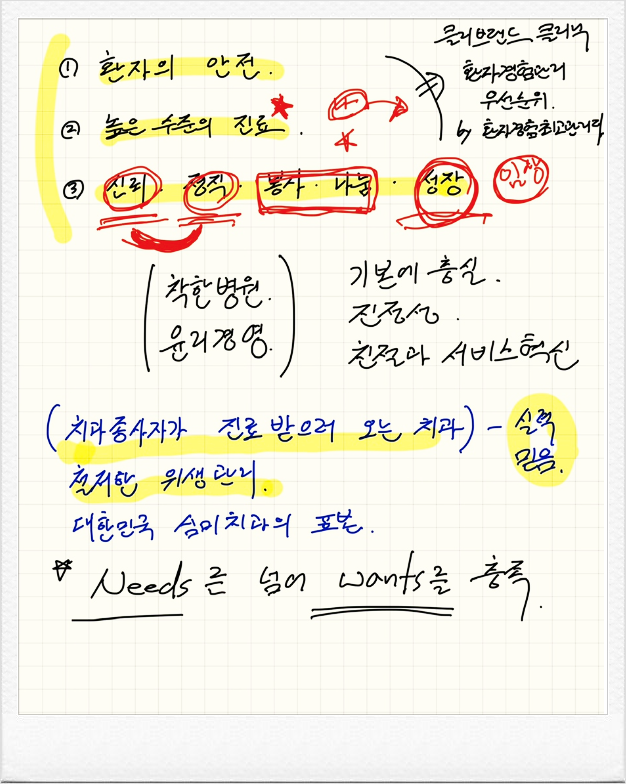 클리브랜드 클리닉
환자경험관리
우선순위.
↳ 환자경험최고관리자
① 환자의 안전.
② 높은 수준의 진료.
③ 신뢰 · 정직 · 봉사 · 나눔 · 성장
입장
착한병원.
윤리경영.
기본에 충실.
진정성.
친절과 서비스혁신
(치과종사자가 진료 받으러 오는 치과) - 실력
믿음.
철저한 위생관리.
대한민국 심미치과의 표본.
☆ Needs를 넘어 wants를 충족.